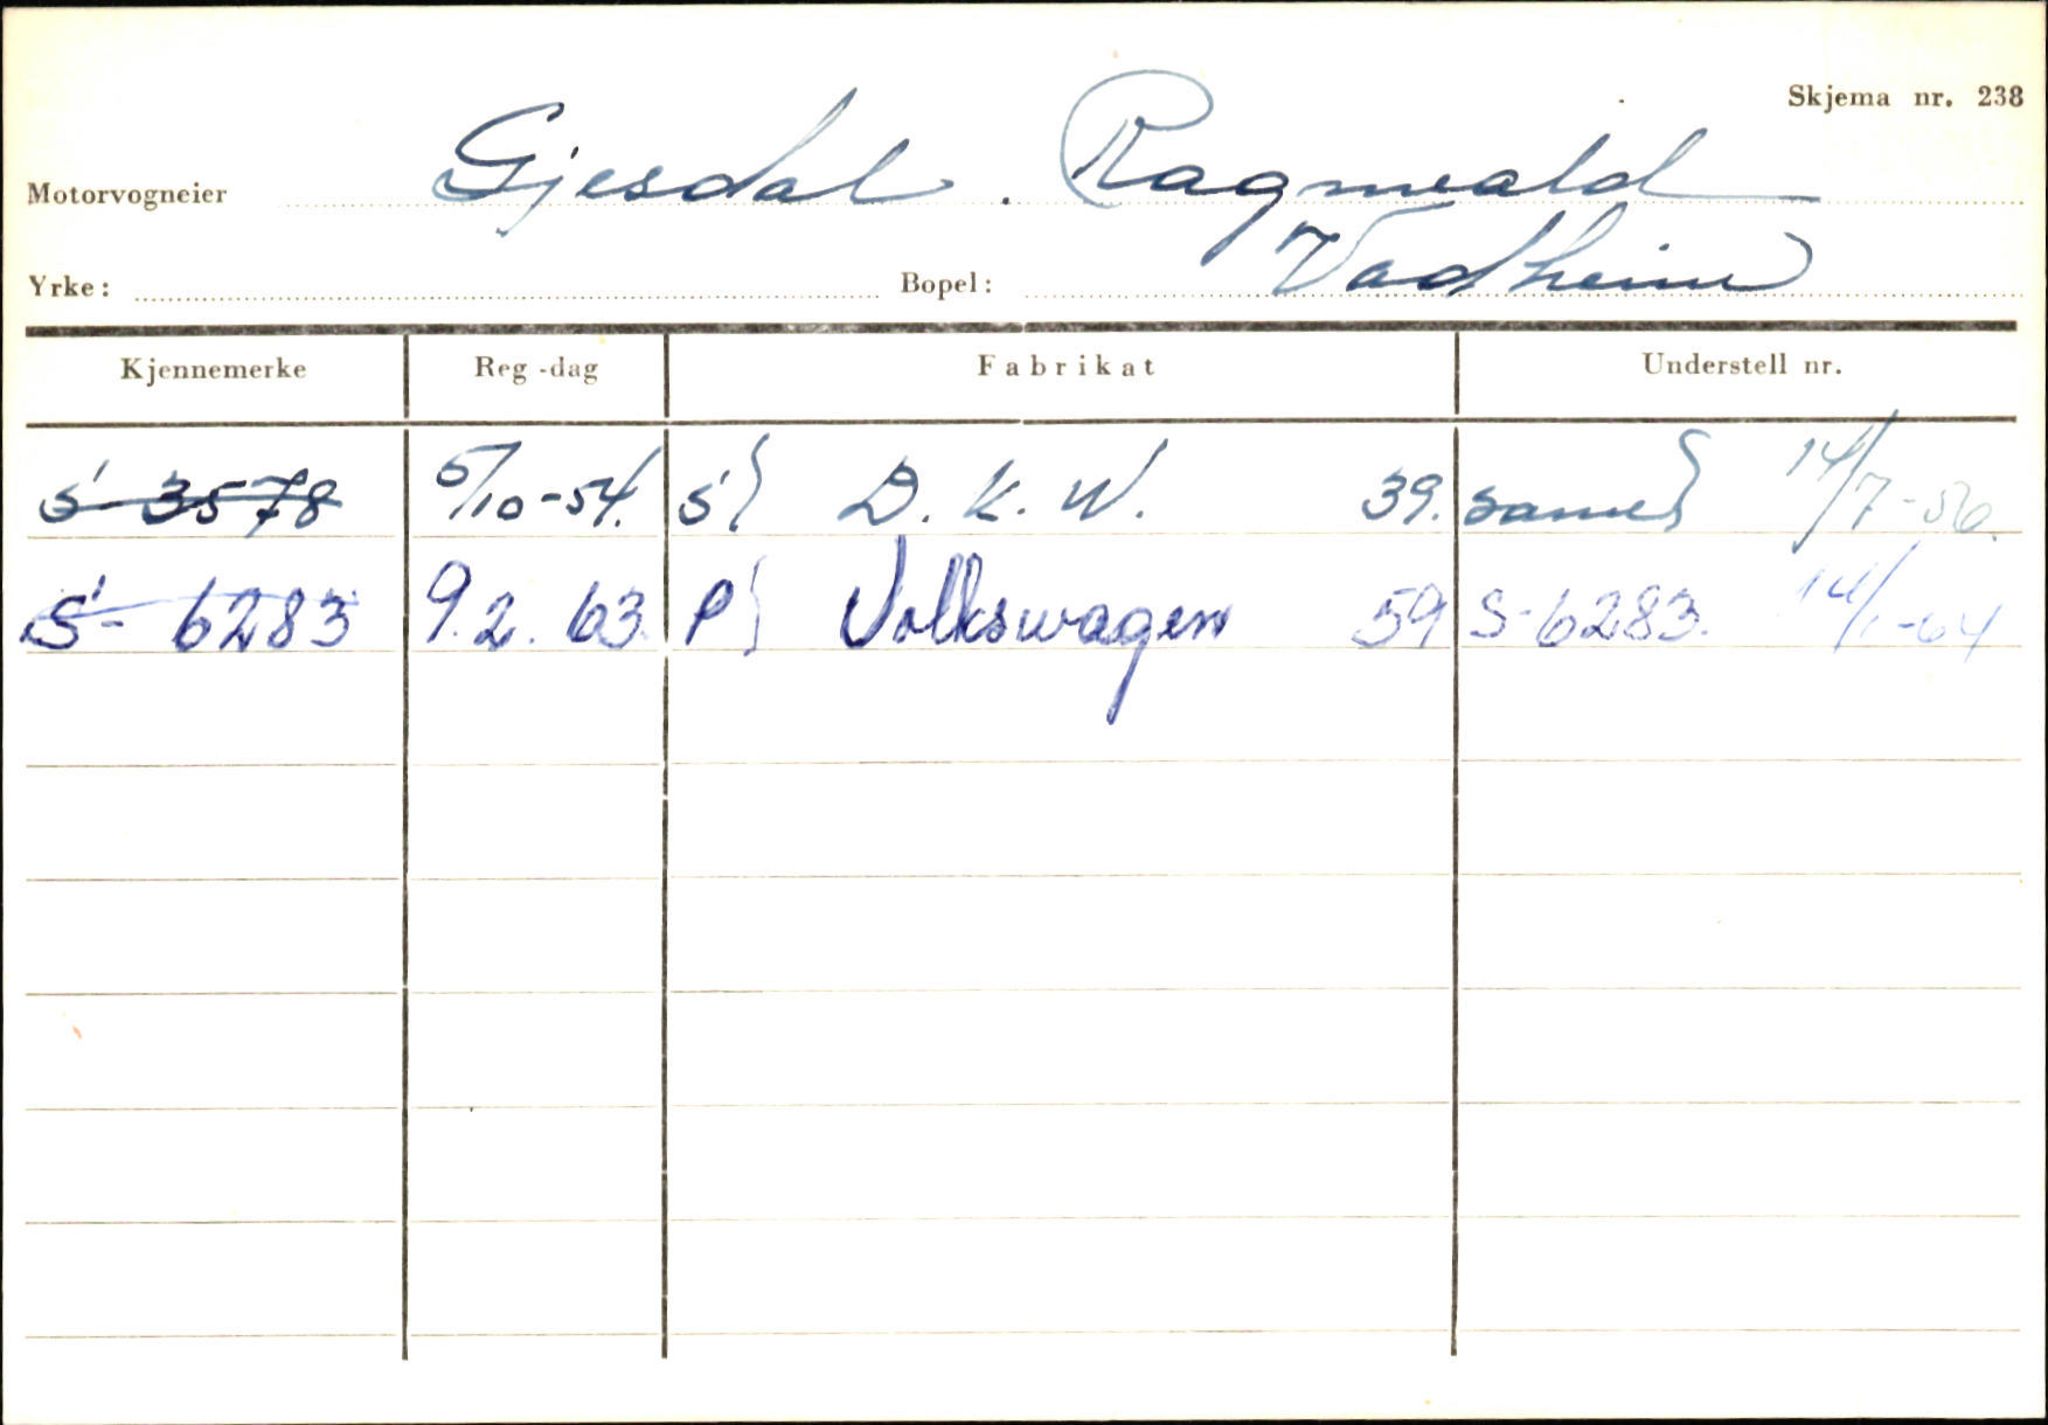 Skjema nr. 238
Motorvogneier Gjesdal. Ragnvald
Yrke: Bopel: Vadheim
Kjennemerke Reg-dag Fabrikat Understell nr.
S 3578 5/10-54. S} D.K.W. 39. same} 14/7-56.
S- 6283 9.2.63. P} Volkswagen 59 S-6283. 14/1-64